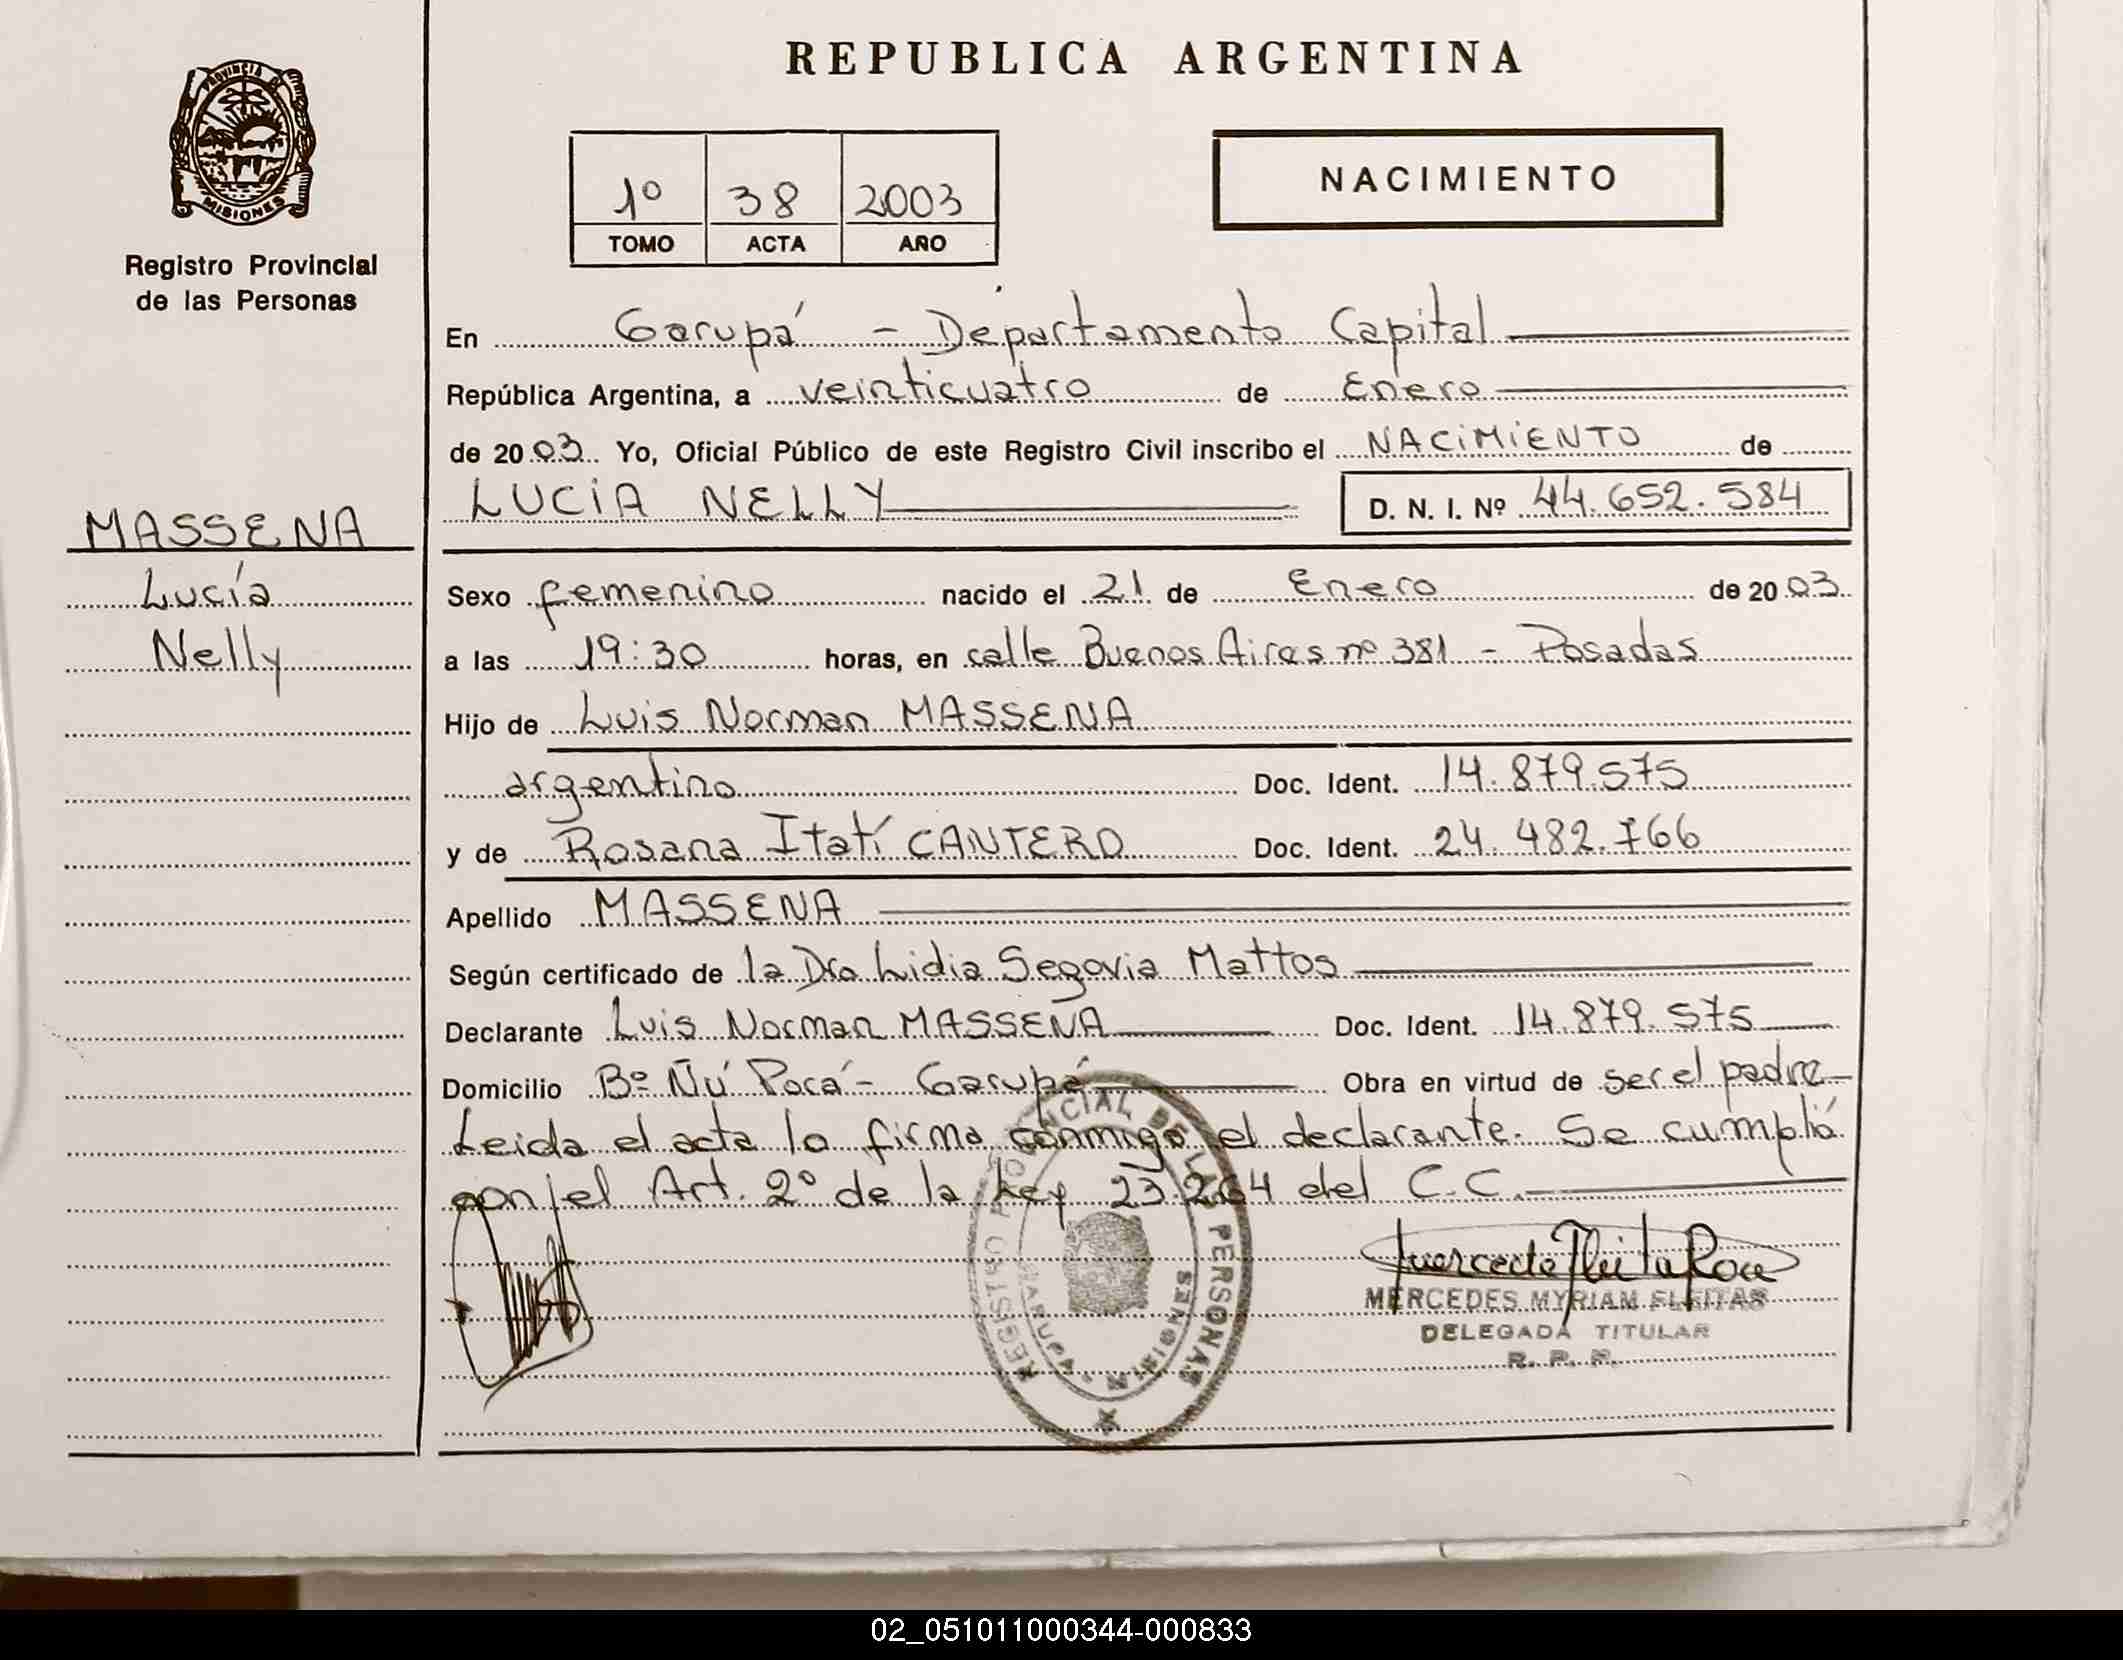 REPUBLICA ARGENTINA
PROVINCIA DE
MISIONES
Registro Provincial
de las Personas
1º 38 2003
TOMO ACTA AÑO
NACIMIENTO
En Garupá - Departamento Capital
República Argentina, a veinticuatro de Enero
de 2003 Yo, Oficial Público de este Registro Civil inscribo el NACIMIENTO de
LUCIA NELLY D. N. I. Nº 44.652.584
MASSENA
Lucía
Nelly
Sexo femenino nacido el 21 de Enero de 2003
a las 19:30 horas, en calle Buenos Aires nº 381 - Posadas
Hijo de Luis Norman MASSENA
argentino Doc. Ident. 14.879.575
y de Rosana Itatí CANTERO Doc. Ident. 24.482.766
Apellido MASSENA
Según certificado de la Dra Lidia Segovia Mattos
Declarante Luis Norman MASSENA Doc. Ident. 14.879.575
Domicilio Bº Ñú Porá - Garupá Obra en virtud de ser el padre
Leida el acta la firma conmigo el declarante. Se cumplió
con el Art. 2º de la Ley 23.264 del C.C.
REGISTRO PROVINCIAL DE LAS PERSONAS
GARUPA - MISIONES
MERCEDES MYRIAM FLEITAS
DELEGADA TITULAR
R. P. P.
02_051011000344-000833